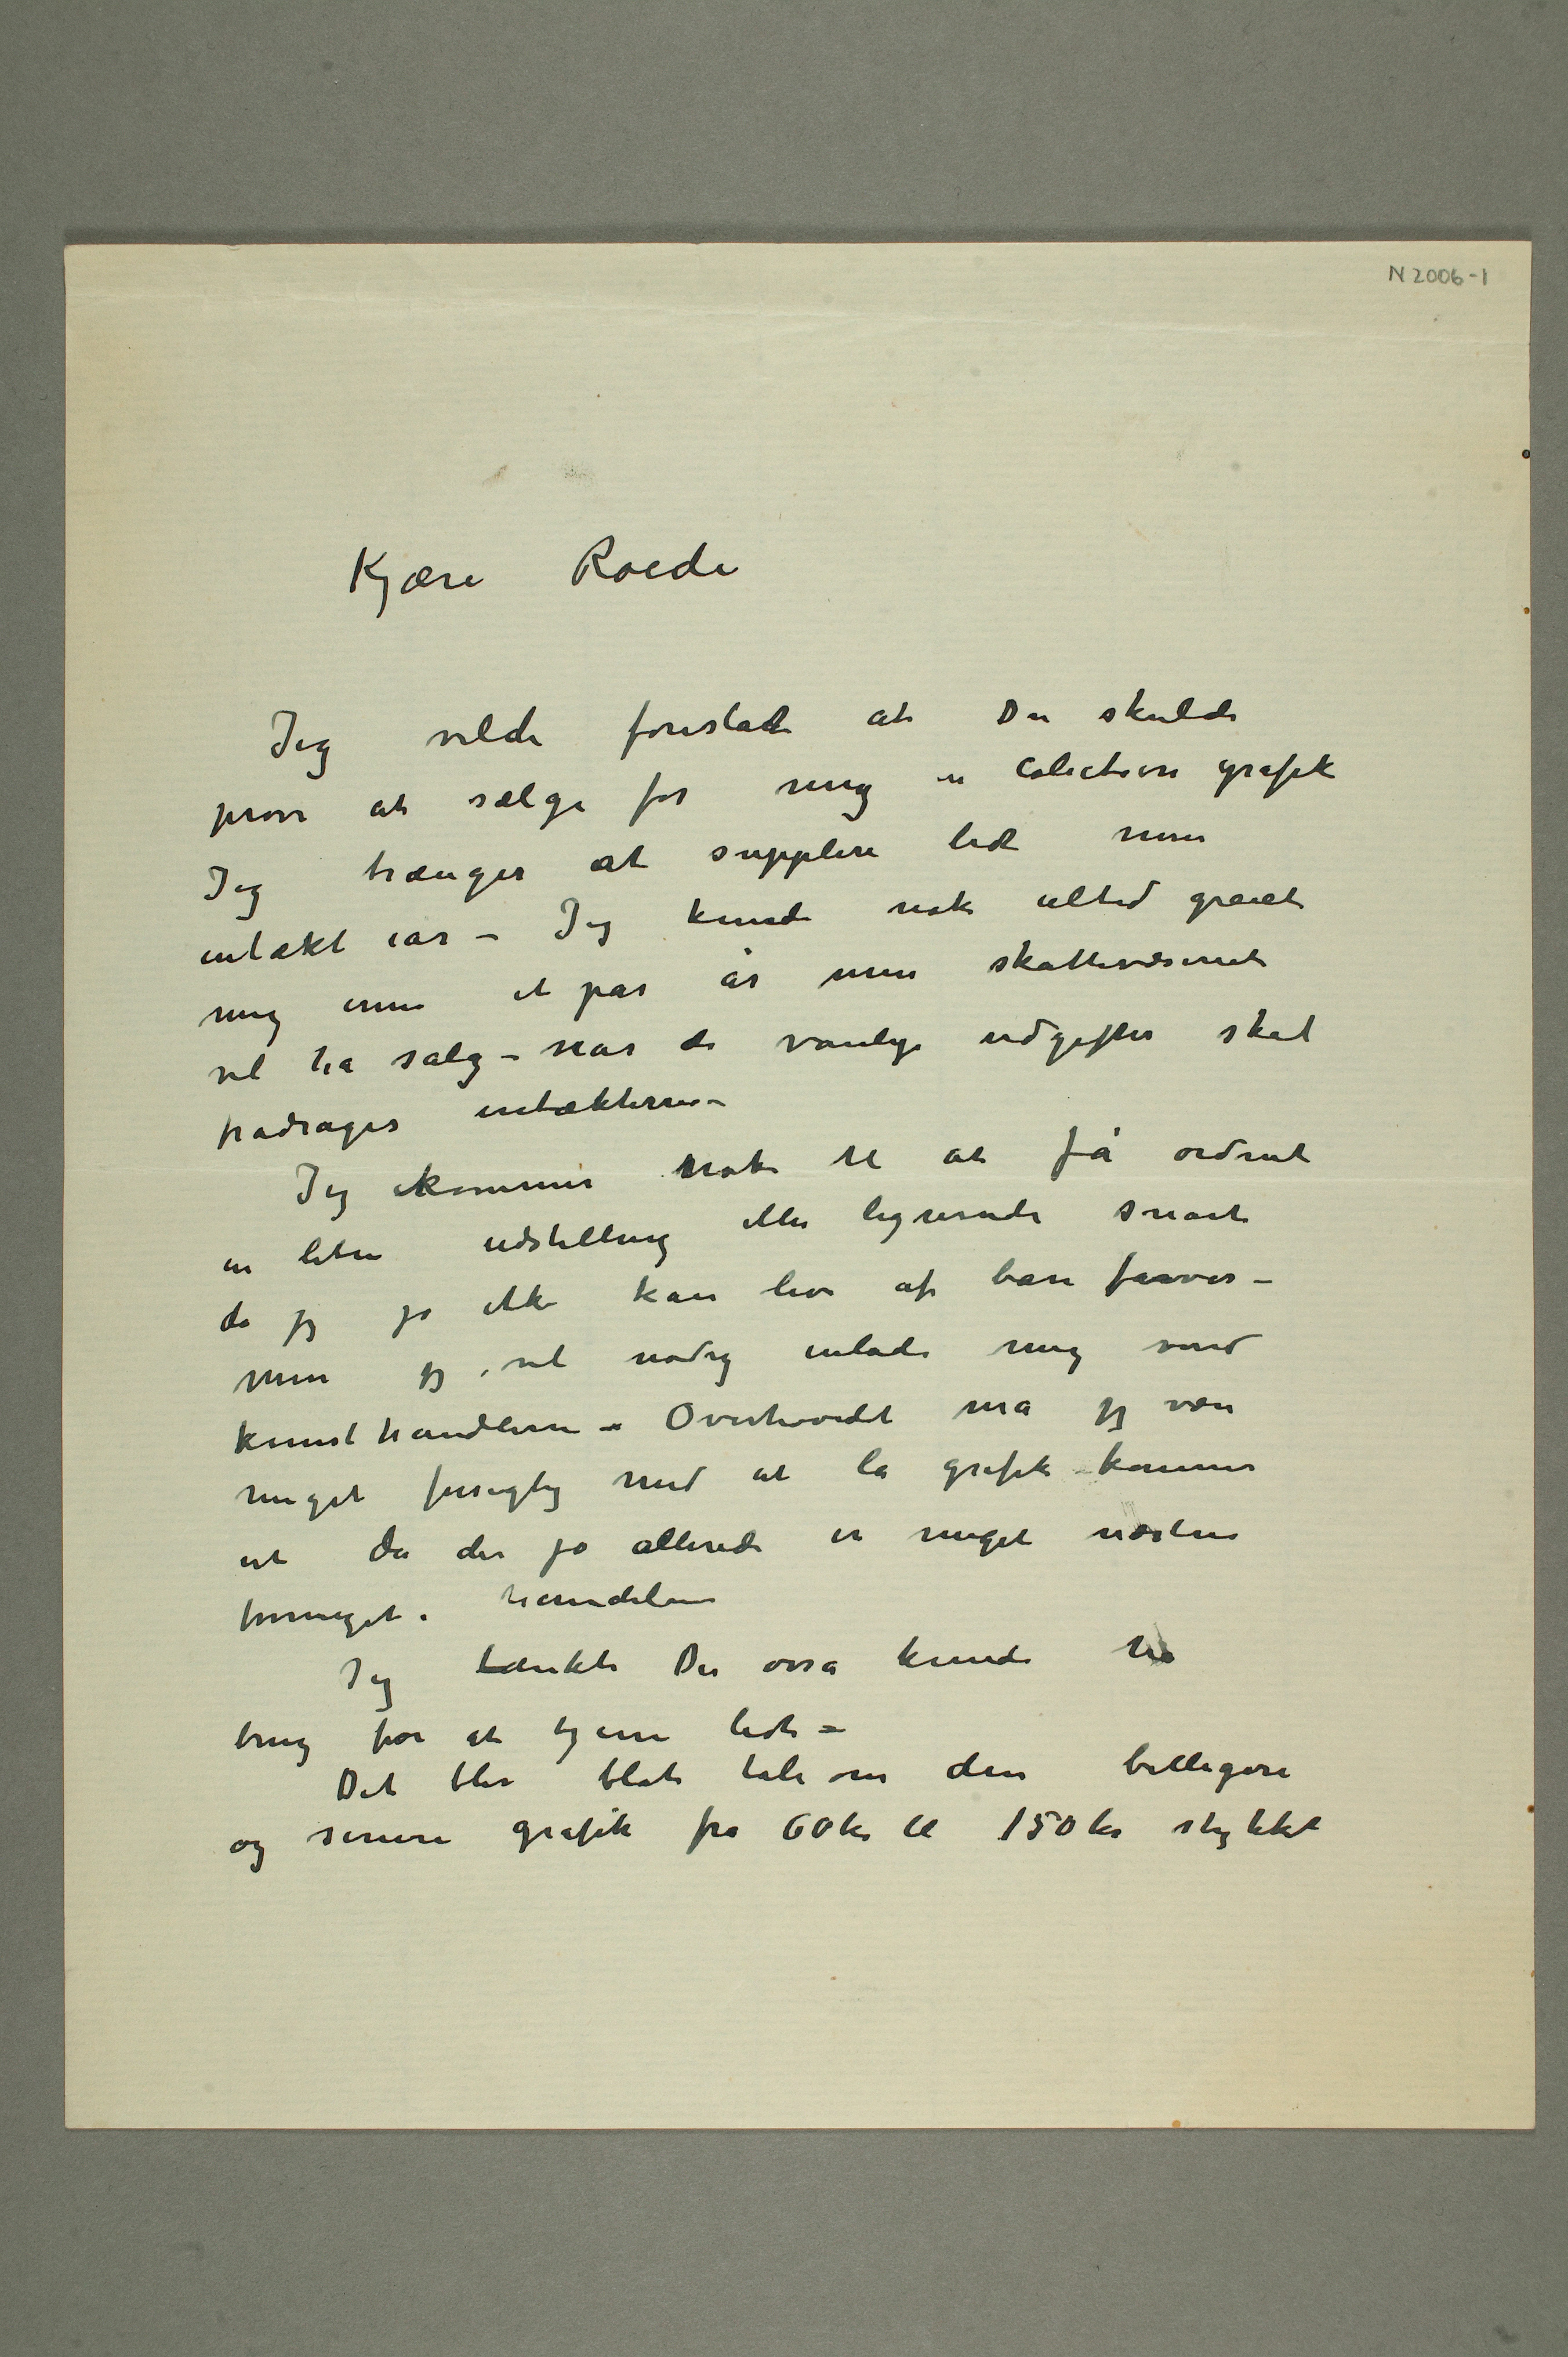 N 2006-1
Kjære Roede
Jeg vilde foreslaat at Du skulde
prøve at sælge for mig en Colection grafik
Jeg trænger at supplere lidt min
intækt iår – Jeg kunde nok altid greiet
mig ennu et par år men skattevæsenet
vil ha salg – når de vanlige udgifter skal
fradrages intækterne –
Jeg kommer nok til at få ordnet
en liten udstilling eller lignende snart
da jeg jo ikke kan leve af bare farver –
men jeg vil nødig inlade mig med
kunsthandlerne – Overhovedet må jeg være
meget forsigtig med at la grafik komme
ut da der jo allerede er meget næsten
formeget i handelen
Jeg tænkte Du osså kunde ha
brug for at tjene lidt –
Det blir blot tale om den billigere
og senere grafik fra 60 kr til 150 kr stykket